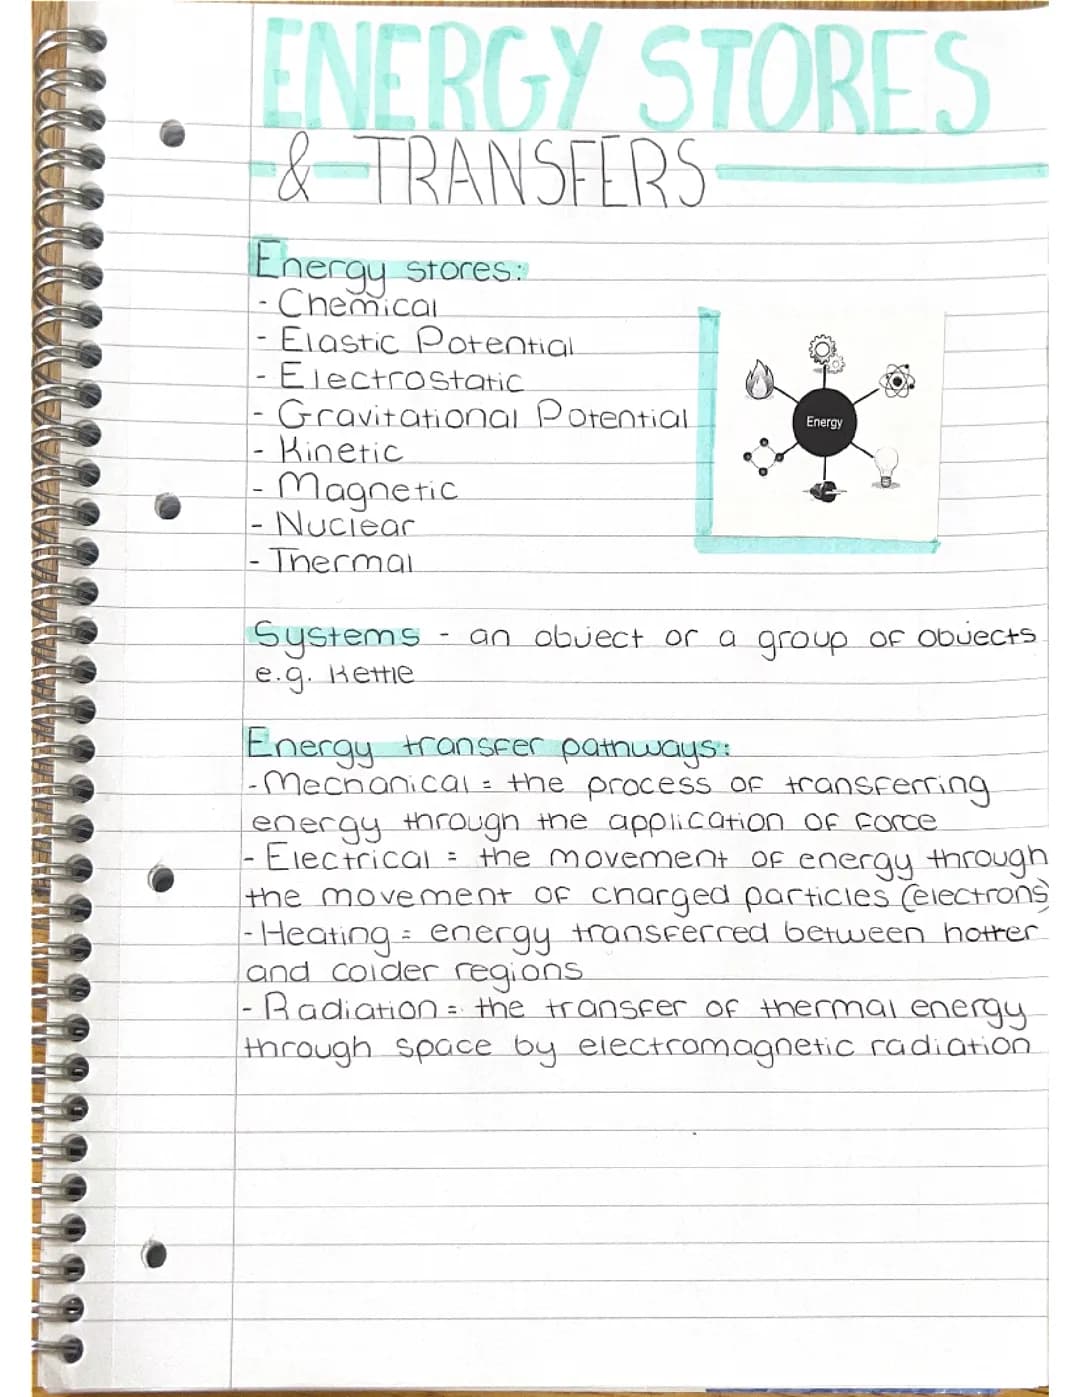 ENERGY STORES
& TRANSFERS
Energy stores:
- Chemical
- Elastic Potential
- Electrostatic
- Gravitational Potential
- Kinetic
- Magnetic
- Nuclear
- Thermal
Energy
Systems - an object or a group of objects
e.g. Kettle
Energy transfer pathways:
- Mechanical = the process of transferring
energy through the application of force
- Electrical = the movement of energy through
the movement of charged particles (electrons)
- Heating = energy transferred between hotter
and colder regions
- Radiation = the transfer of thermal energy
through space by electromagnetic radiation